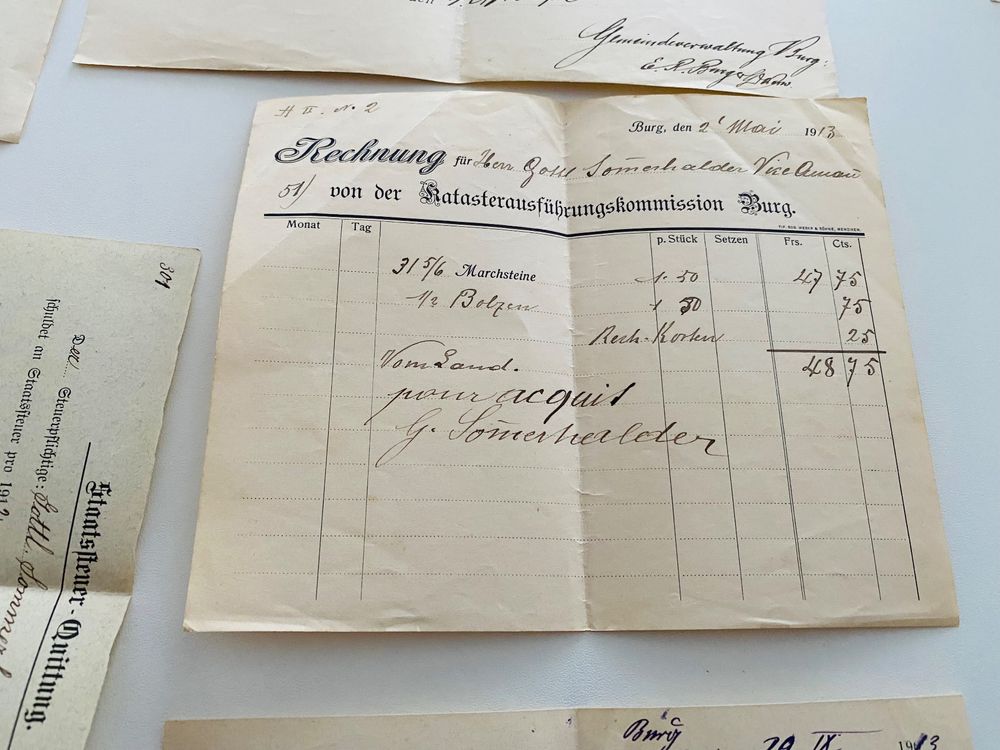 den
Gemeindeverwaltung Burg:
E. R. Burger
A II. No. 2
Burg, den 2t Mai 1913
Rechnung für Herr Gottl Som̄erhalder Vice Aman
51/ von der Katasterausführungskommission Burg.
TIP. BUG. WEBER & SÖHNE, MENZIKEN.
Monat Tag p. Stück Setzen Frs. Cts.
31 5/6 Marchsteine 1. 50 47 75
1/2 Bolzen 1 50 75
Rech. Korten 25
48 75
Vom Land.
pour acquit
G. Som̄erhalder
301
Staatssteuer-Quittung.
Der Steuerpflichtige: Gottl. Sommer
schuldet an Staatssteuer pro 1912,
Burg IX. 1913